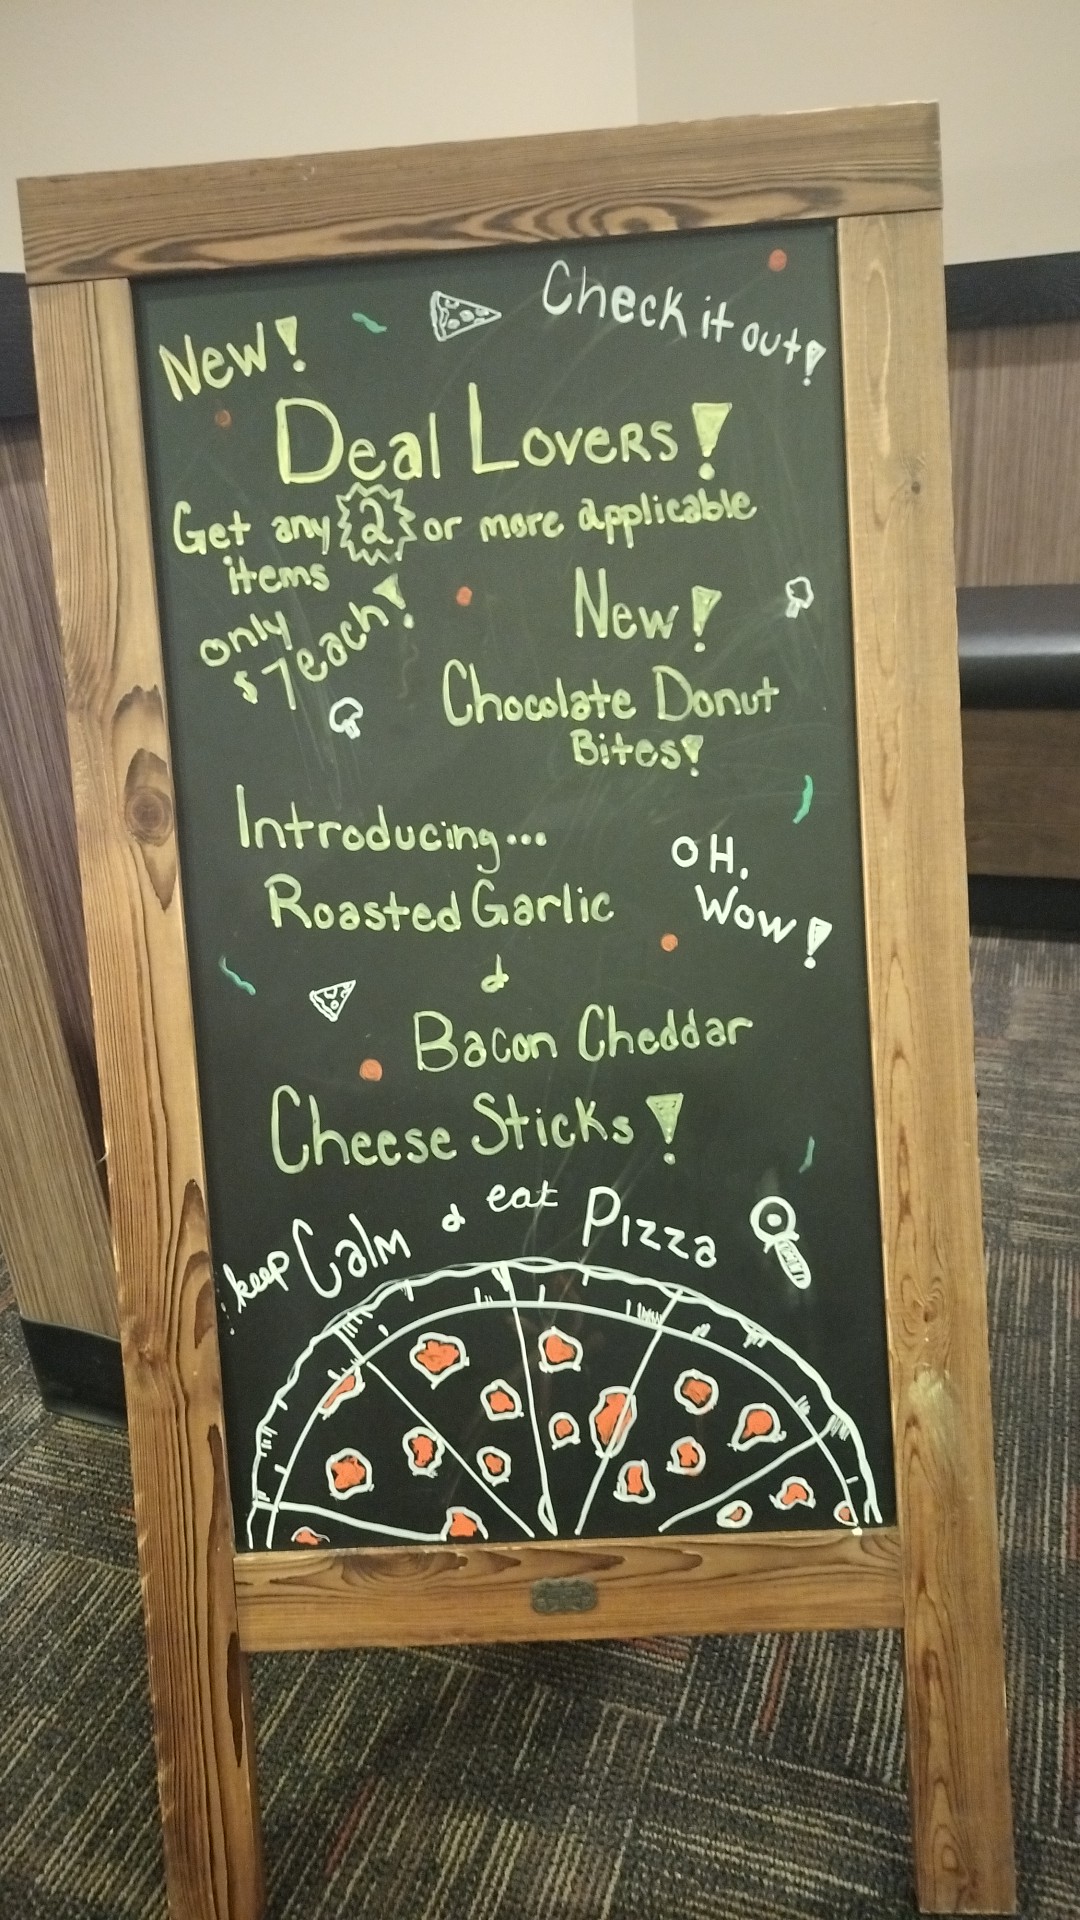 Check it out!
New!
Deal Lovers!
Get any 2 or more applicable
items
only
$7 each!
New!
Chocolate Donut
Bites!
Introducing...
OH,
Wow!
Roasted Garlic
&
Bacon Cheddar
Cheese Sticks!
keep Calm & eat Pizza